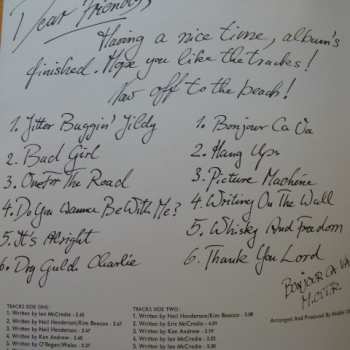 Dear Friends,
Having a nice time, album's
finished. Hope you like the tracks!
Now off to the beach!
1. Jitter Buggin' Jildy
2. Bad Girl
3. One For The Road
4. Do You Wanna Be With Me?
5. It's Alright
6. Dog Guld. Charlie
1. Bonjour Ca Va
2. Hang Ups
3. Picture Machine
4. Writing On The Wall
5. Whisky And Freedom
6. Thank You Lord
BONJOUR CA VA
TRACKS SIDE ONE:
1. Written by Ian McCredie - 3.45
2. Written by Neil Henderson/Kim Beacon - 3.47
3. Written by Neil Henderson
4. Written by Ken Andrew
5. Written by
TRACKS SIDE TWO:
1. Written by Neil Henderson/Kim Beacon
2. Written by Eric McCredie
3. Written by Ken Andrew
4. Written by Ian McCredie
5. Written by
Arranged And Produced By